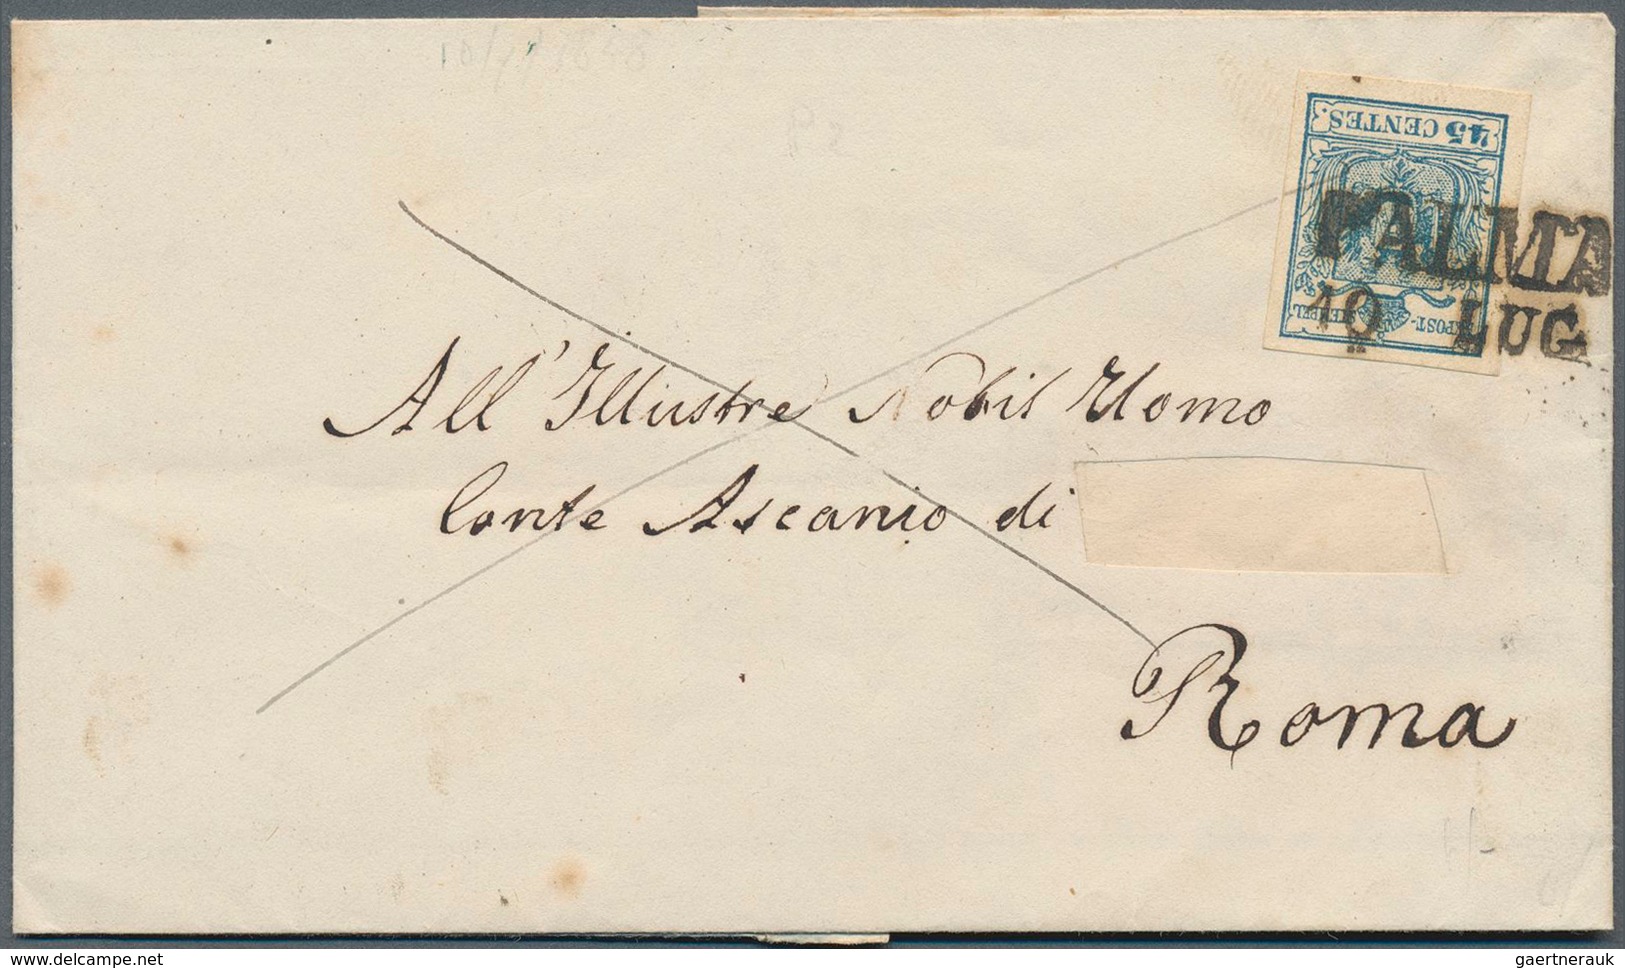 45 CENTES.
KPOST-STEMPEL
PALMA
10 LUG
All'Illustre Nobil Uomo
Conte Ascanio di
Roma
delcampe.net
gaertnerauk